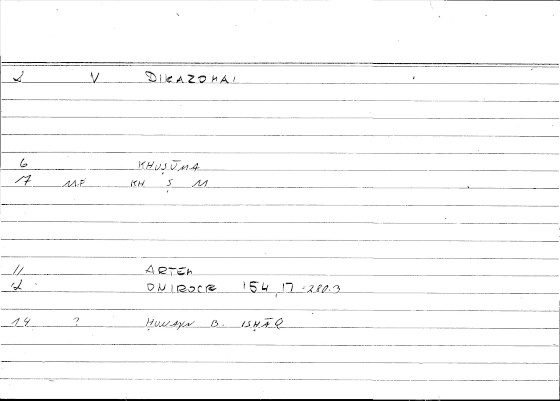 2 V DIKAZOMAI
6 KHUṢŪMA
17 M.F KH Ṣ M
11 ARTEM
2 ONIROCR 154,17-280.3
14 ? ḤUNAYN B. ISḤĀQ